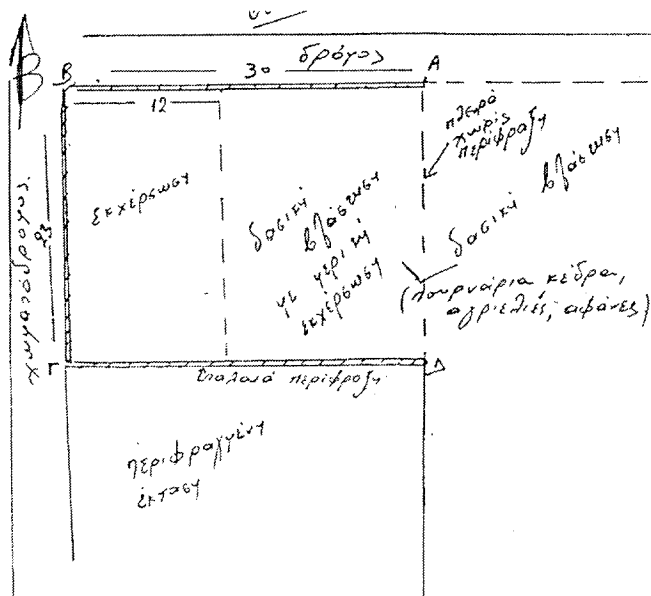 Β
Β
30
δρόμος
Α
12
πλευρά
χωρίς
περίφραξη
εκχέρσωση
δασική
βλάστηση
με μερική
εκχέρσωση
δασική βλάστηση
(πουρνάρια κέδρα,
αγριελιές, αφάνες)
23
χωματόδρομος
Γ
Δ
παλαιά περίφραξη
περιφραγμένη
έκταση